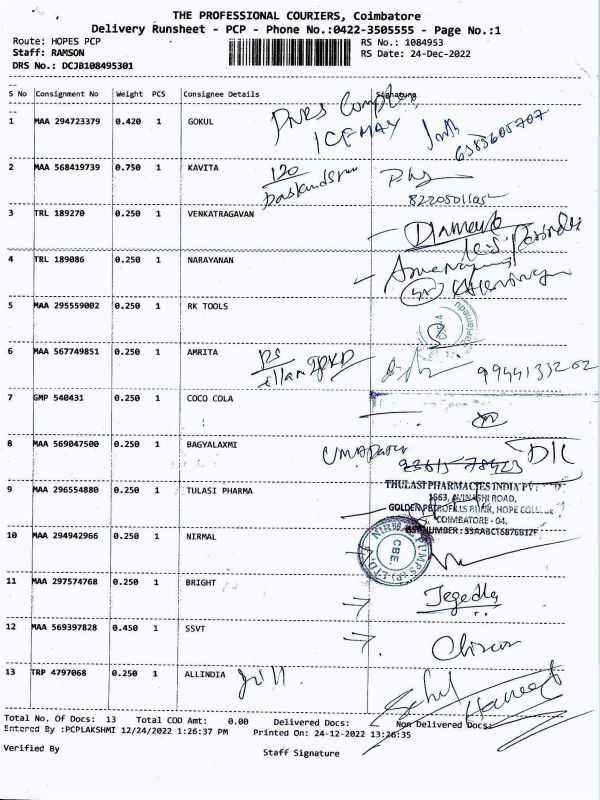 THE PROFESSIONAL COURIERS, Coimbatore
Delivery Runsheet - PCP - Phone No.:0422-3505555 - Page No.:1
Route: HOPES PCP RS No.: 1084953
Staff: RAMSON RS Date: 24-Dec-2022
DRS No.: DCJB108495301
S No Consignment No Weight PCS Consignee Details Signature
1 MAA 294723379 0.420 1 GOKUL
ICEMAY
2 MAA 568419739 0.750 1 KAVITA
120
3 TRL 189270 0.250 1 VENKATRAGAVAN
4 TRL 189086 0.250 1 NARAYANAN
5 MAA 295559002 0.250 1 RK TOOLS
6 MAA 567749851 0.250 1 AMRITA
7 GMP 540431 0.250 1 COCO COLA
8 MAA 569047500 0.250 1 BAGYALAXMI
9 MAA 296554880 0.250 1 TULASI PHARMA
THULASI PHARMACIES INDIA PVT
1563, AVINASHI ROAD,
GOLDEN PETROFILLS BUNK, HOPE COLLEGE
COIMBATORE - 04.
10 MAA 294942966 0.250 1 NIRMAL
CBE.
11 MAA 297574768 0.250 1 BRIGHT
12 MAA 569397828 0.450 1 SSVT
13 TRP 4797068 0.250 1 ALLINDIA
Total No. Of Docs: 13 Total COD Amt: 0.00 Delivered Docs: Non Delivered Docs:
Entered By :PCPLAKSHMI 12/24/2022 1:26:37 PM Printed On: 24-12-2022 13:26:35
Verified By Staff Signature